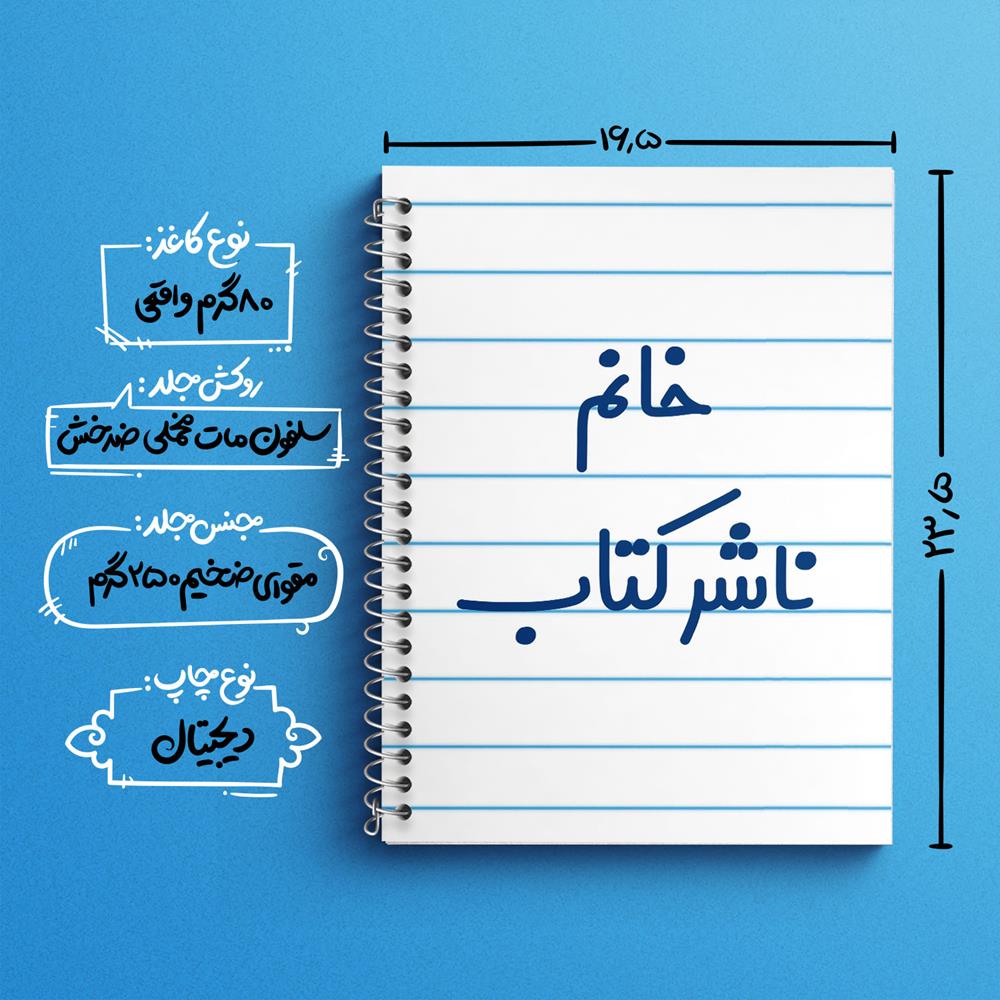 ۱۹٫۵
۲۳٫۵
خانم
ناشر کتاب
نوع کاغذ:
۸۰ گرم واقعی
روکش جلد:
سلفون مات مخملی ضدخش
جنس جلد:
مقوای ضخیم ۲۵۰ گرم
نوع چاپ:
دیجیتال